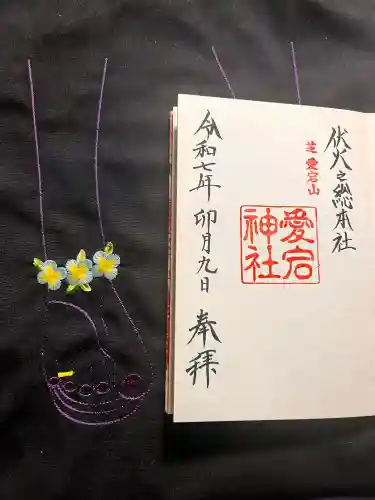 伏火之総本社
芝愛宕山
愛宕
神社
令和七年卯月九日
奉拝